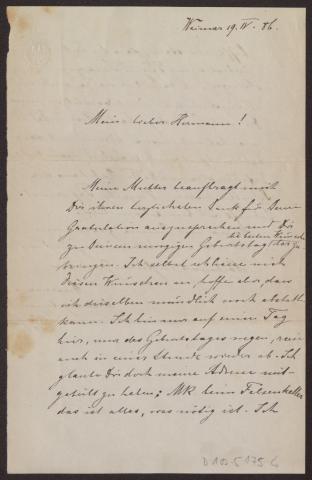 Weimar 19. IV. 86.
Mein lieber Hermann!
Meine Mutter beauftragt mich
Dir ihren herzlichsten Dank für Deine
Gratulation auszusprechen und Dir
die besten Wünsche
zu Deinem morgigen Geburtstag darzu-
bringen. Ich selbst schliesse mich
diesen Wünschen an, hoffe aber, dass
ich dieselben mündlich noch abstatten
kann. Ich bin nur auf einen Tag
hier, und des Geburtstages wegen, reise
auch in einer Stunde wieder ab. Ich
glaube Dir doch meine Adresse mit-
geteilt zu haben; MK beim Felsenkeller
das ist alles, was nötig ist. Ich